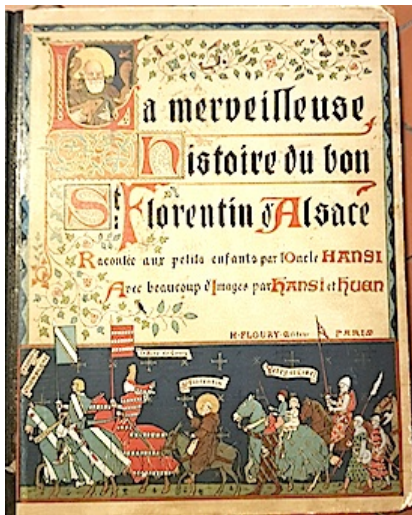 La merveilleuse
histoire du bon
St Florentin d'Alsace
Racontée aux petits enfants par l'Oncle HANSI
Avec beaucoup d'Images par Hansi et Huen
H·FLOURY·Editeur PARIS
St Florentin